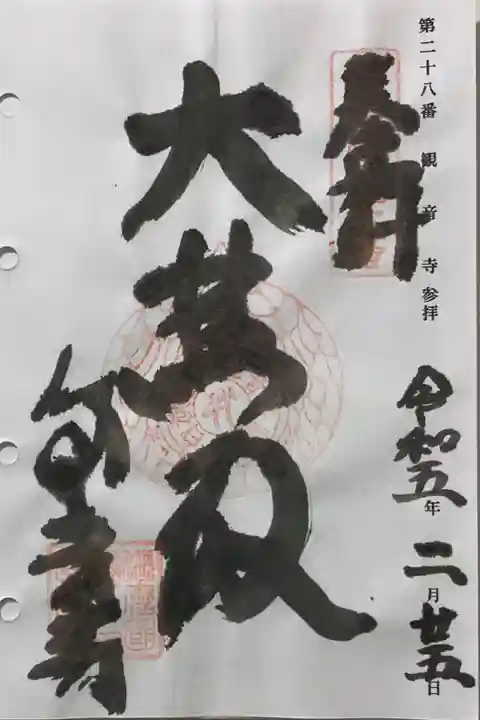 第二十八番 観音寺 参拝
令和五年 二月廿五日
奉拝
大慈殿
観音寺